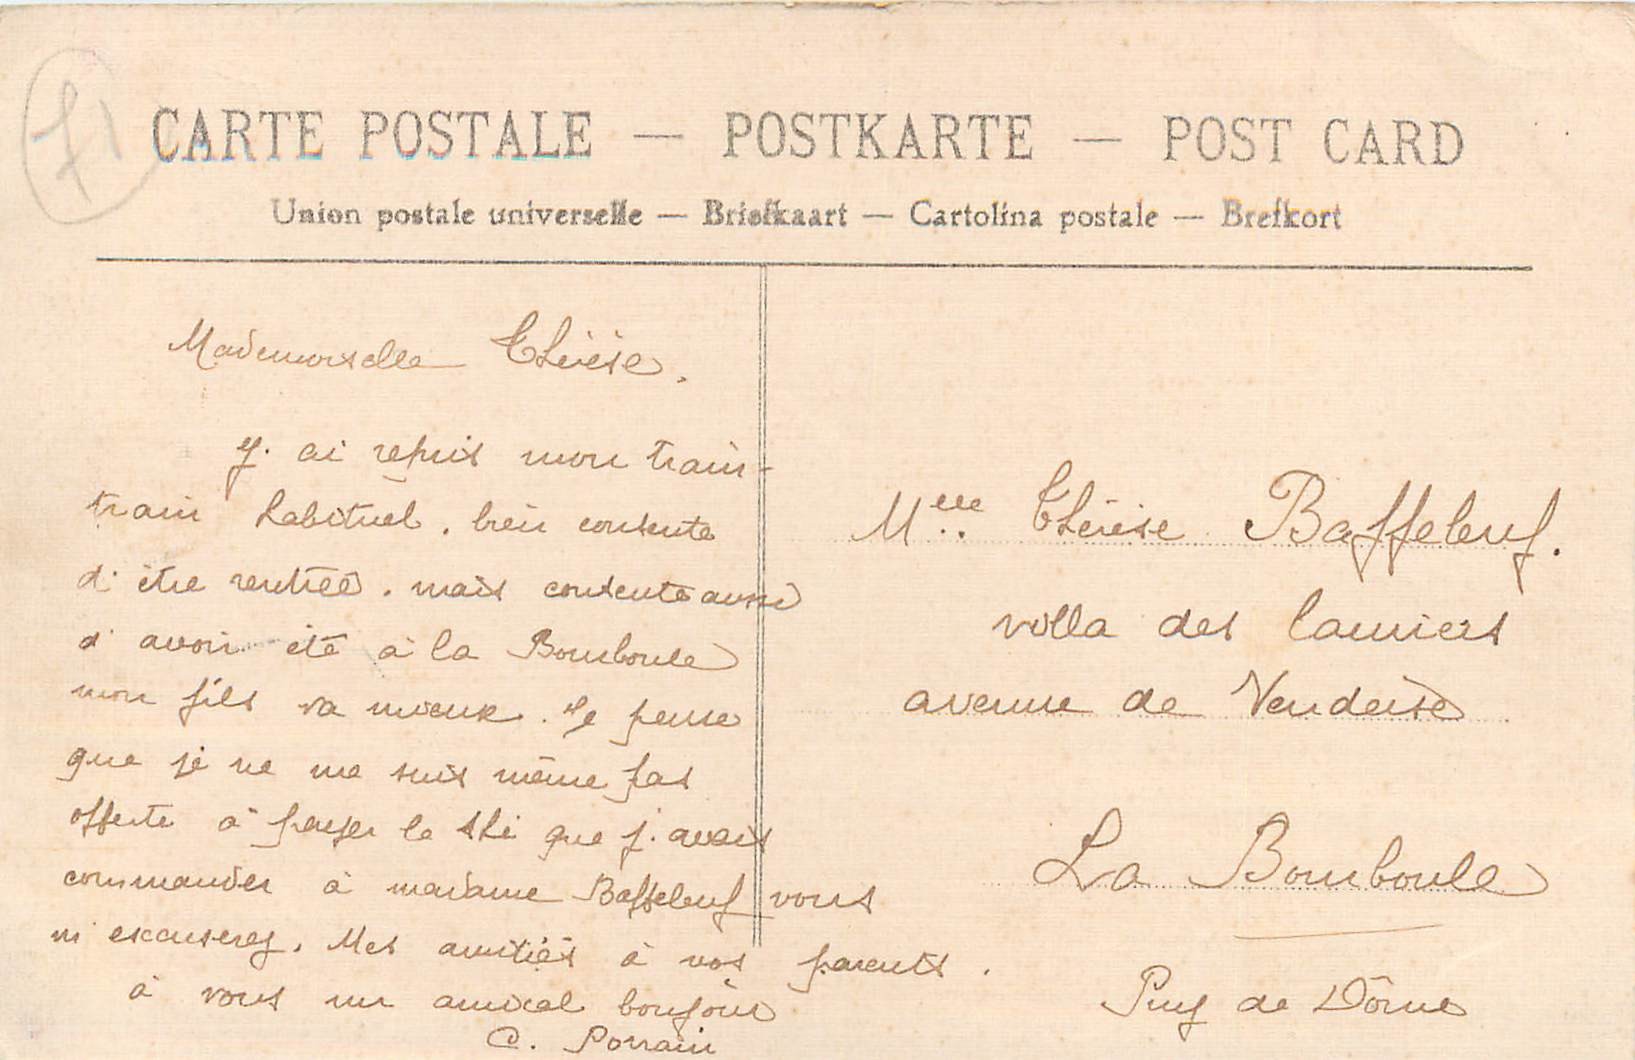 f1
CARTE POSTALE — POSTKARTE — POST CARD
Union postale universelle — Briefkaart — Cartolina postale — Brefkort
Mademoiselle Thérèse.
j'ai repris mon train-
train habituel. bien contente
d'être rentrée. mais contente aussi
d'avoir été à la Bourboule
mon fils va mieux. Je pense
que je ne me suis même pas
offerte à payer le thé que j'avais
commander à madame Baffeleuf vous
m'excuserez. Mes amitiés à vos parents.
à vous un amical bonjour
C. Porrain
Mlle Thérèse Baffeleuf.
villa des lauriers
avenue de Vendeise
La Bourboule
Puy de Dôme